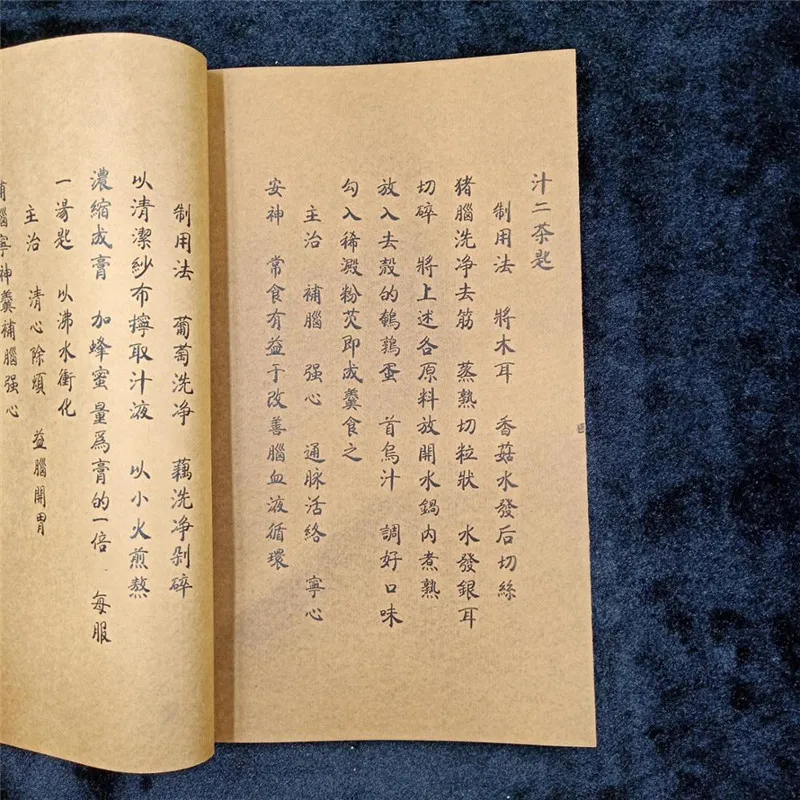 汁二茶匙
制用法 將木耳 香菇水發后切絲
猪腦洗净去筋 蒸熟切粒狀 水發銀耳
切碎 將上述各原料放開水鍋内煮熟
放入去殻的鵪鶉蛋 首烏汁 調好口味
勾入稀澱粉芡即成羹食之
主治 補腦 强心 通脉活絡 寧心
安神 常食有益于改善腦血液循環
制用法 葡萄洗净 藕洗净剁碎
以清潔紗布擰取汁液 以小火煎熬
濃缩成膏 加蜂蜜 量爲膏的一倍 每服
一湯匙 以沸水衝化
主治 清心除煩 益腦開胃
腦寧神羹補腦强心